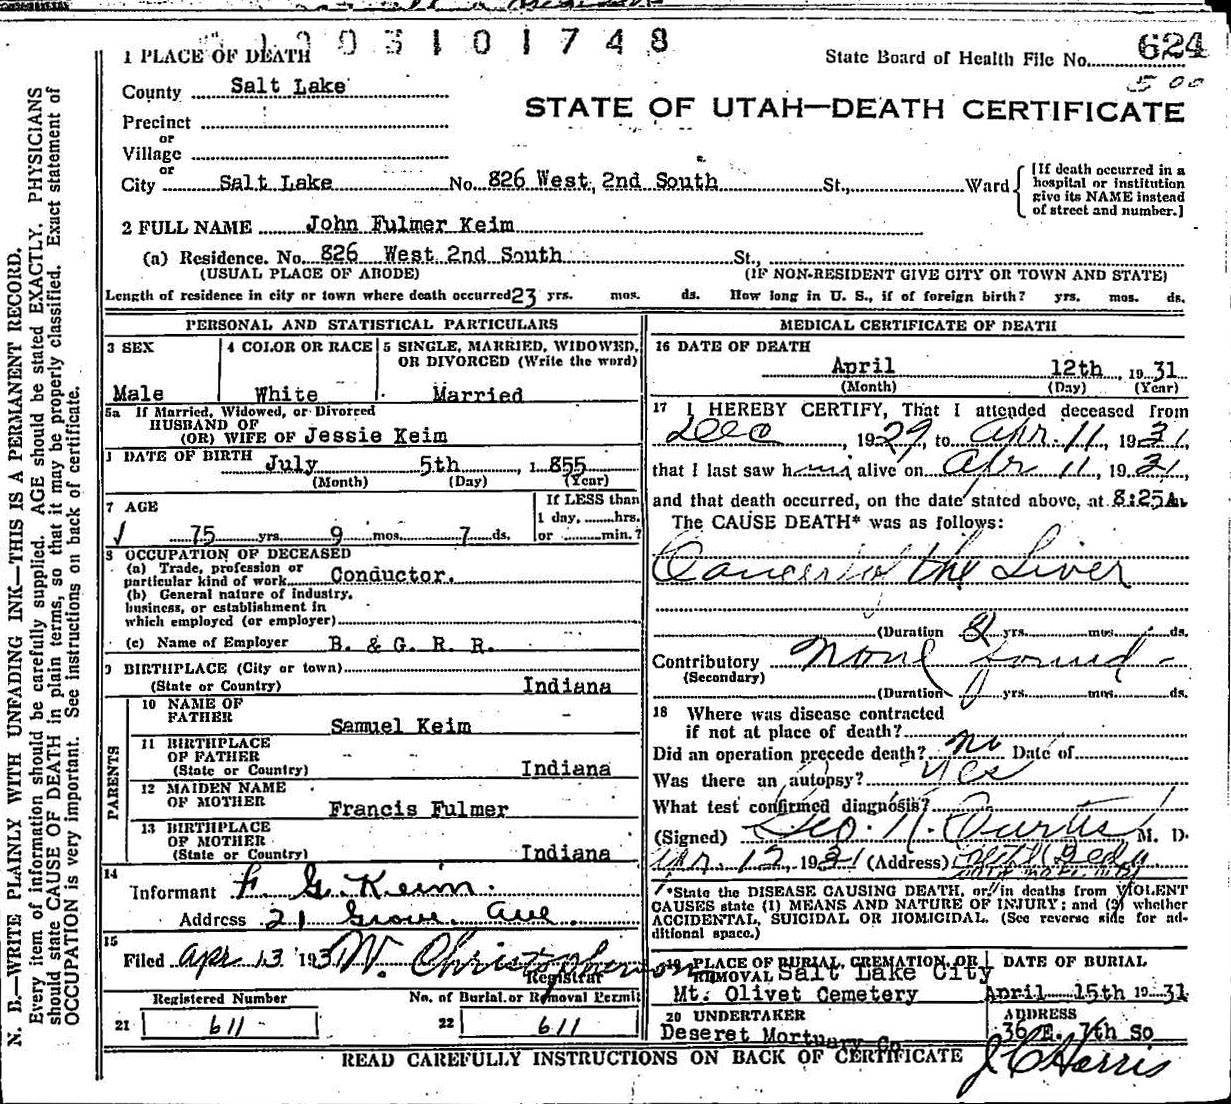 1003101748
1 PLACE OF DEATH
State Board of Health File No. 624
5 00
County Salt Lake
STATE OF UTAH—DEATH CERTIFICATE
Precinct
or
Village
or
City Salt Lake No. 826 West, 2nd South St., Ward
[If death occurred in a
hospital or institution
give its NAME instead
of street and number.]
2 FULL NAME John Fulmer Keim
(a) Residence. No. 826 West 2nd South St.,
(USUAL PLACE OF ABODE) (IF NON-RESIDENT GIVE CITY OR TOWN AND STATE)
Length of residence in city or town where death occurred 23 yrs. mos. ds. How long in U. S., if of foreign birth? yrs. mos. ds.
PERSONAL AND STATISTICAL PARTICULARS
3 SEX 4 COLOR OR RACE 5 SINGLE, MARRIED, WIDOWED,
OR DIVORCED (Write the word)
Male White Married
5a If Married, Widowed, or Divorced
HUSBAND OF
(OR) WIFE OF Jessie Keim
DATE OF BIRTH July 5th, 1855
(Month) (Day) (Year)
7 AGE
If LESS than
1 day, hrs.
or min.?
75 yrs. 9 mos. 7 ds.
8 OCCUPATION OF DECEASED
(a) Trade, profession or
particular kind of work Conductor.
(b) General nature of industry,
business, or establishment in
which employed (or employer)
(c) Name of Employer B. & G. R. R.
9 BIRTHPLACE (City or town)
(State or Country) Indiana
PARENTS
10 NAME OF
FATHER
Samuel Keim
11 BIRTHPLACE
OF FATHER
(State or Country) Indiana
12 MAIDEN NAME
OF MOTHER
Francis Fulmer
13 BIRTHPLACE
OF MOTHER
(State or Country) Indiana
14
Informant F. G. Keim.
Address 21 Grove Ave.
15
Filed Apr 13 1931 W. Christopherson
Registrar
Registered Number No. of Burial or Removal Permit
21 611 22 611
MEDICAL CERTIFICATE OF DEATH
16 DATE OF DEATH
April 12th, 1931
(Month) (Day) (Year)
17 I HEREBY CERTIFY, That I attended deceased from
Dec, 1929, to Apr. 11, 1931,
that I last saw him alive on Apr 11, 1931,
and that death occurred, on the date stated above, at 8:25A.
The CAUSE DEATH* was as follows:
Cancer of the Liver
(Duration 2 yrs. mos. ds.
Contributory None found -
(Secondary)
(Duration yrs. mos. ds.
18 Where was disease contracted
if not at place of death?
Did an operation precede death? no Date of
Was there an autopsy? Yes
What test confirmed diagnosis?
(Signed) Geo. N. Curtis M. D.
Apr. 12, 1931 (Address)
*State the DISEASE CAUSING DEATH, or in deaths from VIOLENT
CAUSES state (1) MEANS AND NATURE OF INJURY; and (2) whether
ACCIDENTAL, SUICIDAL OR HOMICIDAL. (See reverse side for ad-
ditional space.)
19 PLACE OF BURIAL, CREMATION, OR DATE OF BURIAL
REMOVAL Salt Lake City
Mt. Olivet Cemetery April 15th 1931
20 UNDERTAKER ADDRESS
Deseret Mortuary Co 36 E. 7th So
READ CAREFULLY INSTRUCTIONS ON BACK OF CERTIFICATE
J C Harris
N. B.—WRITE PLAINLY WITH UNFADING INK—THIS IS A PERMANENT RECORD.
Every item of information should be carefully supplied. AGE should be stated EXACTLY. PHYSICIANS
should state CAUSE OF DEATH in plain terms, so that it may be properly classified. Exact statement of
OCCUPATION is very important. See instructions on back of certificate.